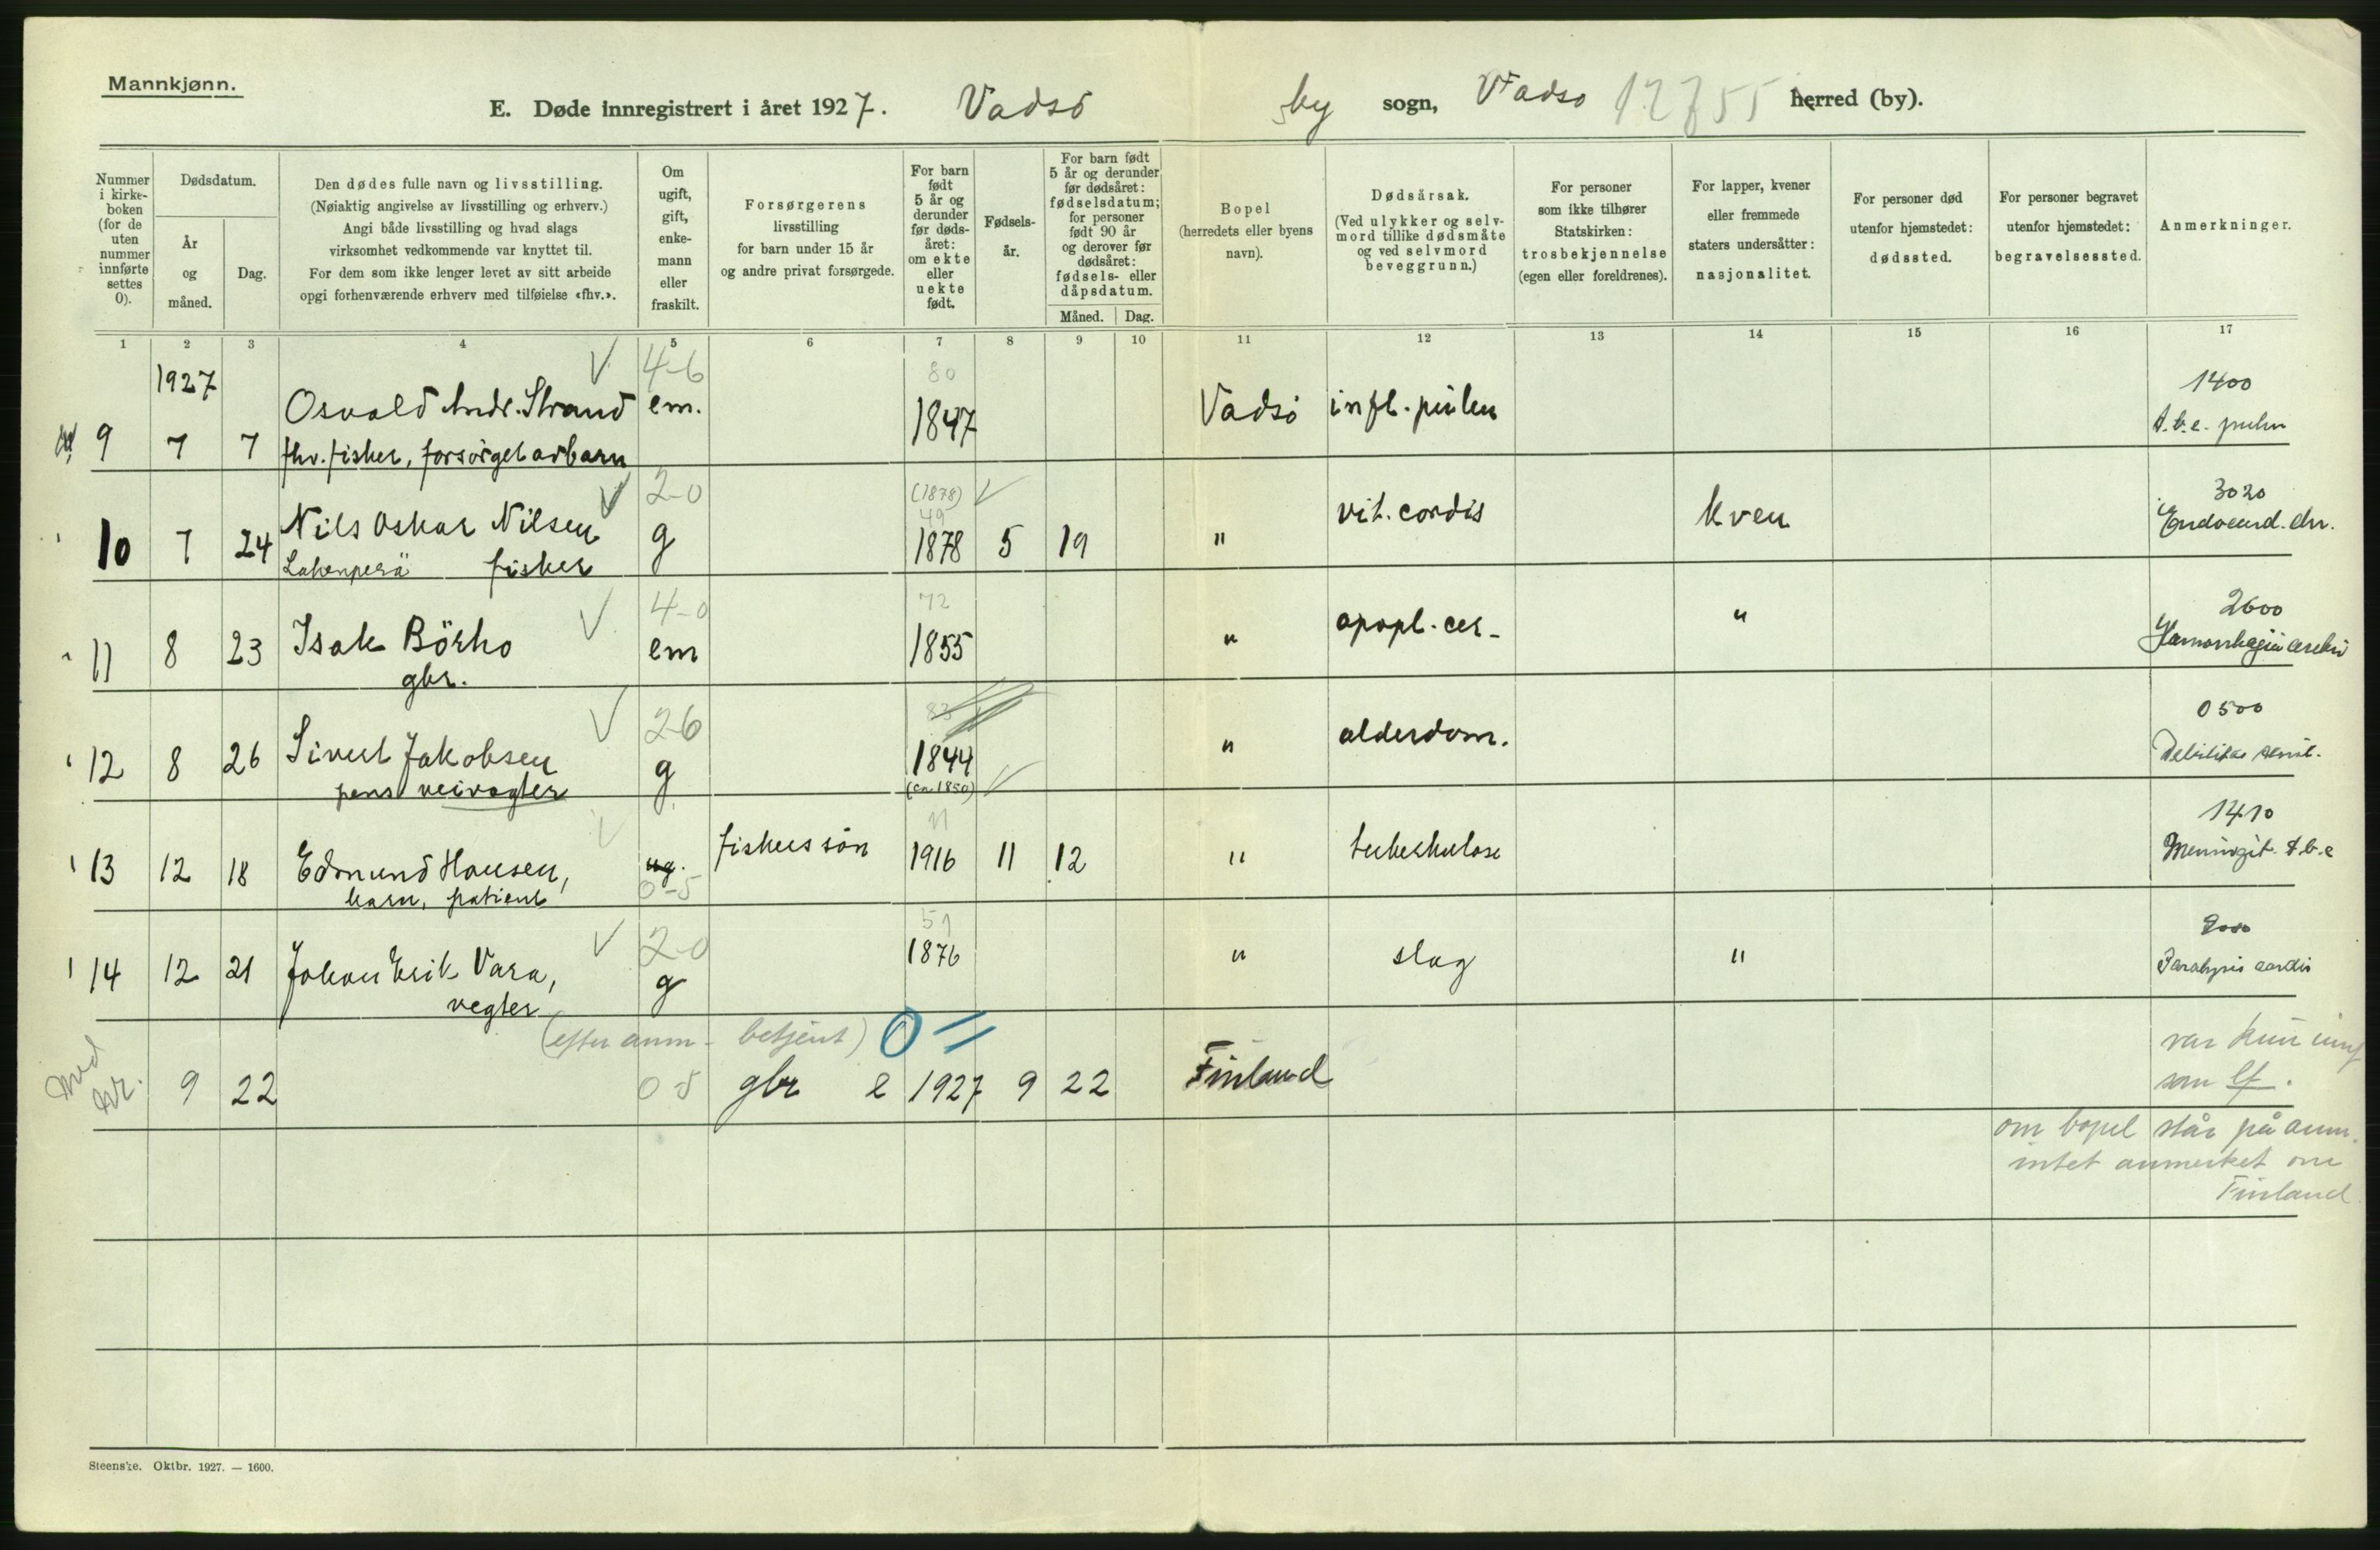 Mannkjønn.
E. Døde innregistrert i året 1927. Vadsö by sogn, Vadsø herred (by).
Nummer i kirkeboken (for de uten nummer innførte settes 0).
Dødsdatum.
År og måned.
Dag.
Den dødes fulle navn og livsstilling.
(Nøiaktig angivelse av livsstilling og erhverv.)
Angi både livsstilling og hvad slags
virksomhet vedkommende var knyttet til.
For dem som ikke lenger levet av sitt arbeide
opgi forhenværende erhverv med tilføielse «fhv.».
Om ugift, gift, enkemann eller fraskilt.
Forsørgerens
livsstilling
for barn under 15 år
og andre privat forsørgede.
For barn født 5 år og derunder før dødsåret: om ekte eller uekte født.
Fødselsår.
For barn født 5 år og derunder før dødsåret: fødselsdatum; for personer født 90 år og derover før dødsåret: fødsels- eller dåpsdatum.
Måned. Dag.
Bopel
(herredets eller byens
navn).
Dødsårsak.
(Ved ulykker og selvmord tillike dødsmåte og ved selvmord beveggrunn.)
For personer
som ikke tilhører
Statskirken:
trosbekjennelse
(egen eller foreldrenes).
For lapper, kvener
eller fremmede
staters undersåtter:
nasjonalitet.
For personer død
utenfor hjemstedet:
dødssted.
For personer begravet
utenfor hjemstedet:
begravelsessted.
Anmerkninger.
1 2 3 4 5 6 7 8 9 10 11 12 13 14 15 16 17
1927 4-6 80 1400
Osvald Andr. Strand em. 1847 Vadsö infl. pulm
9 7 7 fhv. fisker, forsörget av barn t.b.c. pulm
2-0 (1878) 49 3020
10 7 24 Nils Oskar Nilsen g 1878 5 19 " vit. cordis kven Endocard. chr.
Lahenperä fisker
4-0 72 2600
11 8 23 Isak Börho em 1855 " apopl. cer- " Hæmorrhagia cerebri
gbr.
26 83 0500
12 8 26 Sivert Jakobsen g 1844 " alderdom. Debilitas senil.
pens veivogter (ca. 1850)
11 1410
13 12 18 Edmund Hansen, ug. fiskers sön 1916 11 12 " tuberkulose Meningit. t.b.c
barn, patient 0-5
2-0 51
14 12 21 Johan Erik Vara, g 1876 " slag " Paralysis cordis
vegter
(efter anm- betjent) 0 =
9 22 0 5 gbr e 1927 9 22 Finland
var kun innf
som lf.
om bopel står på anm.
intet anmerket om
Finland
Steenske. Oktbr. 1927. — 1600.